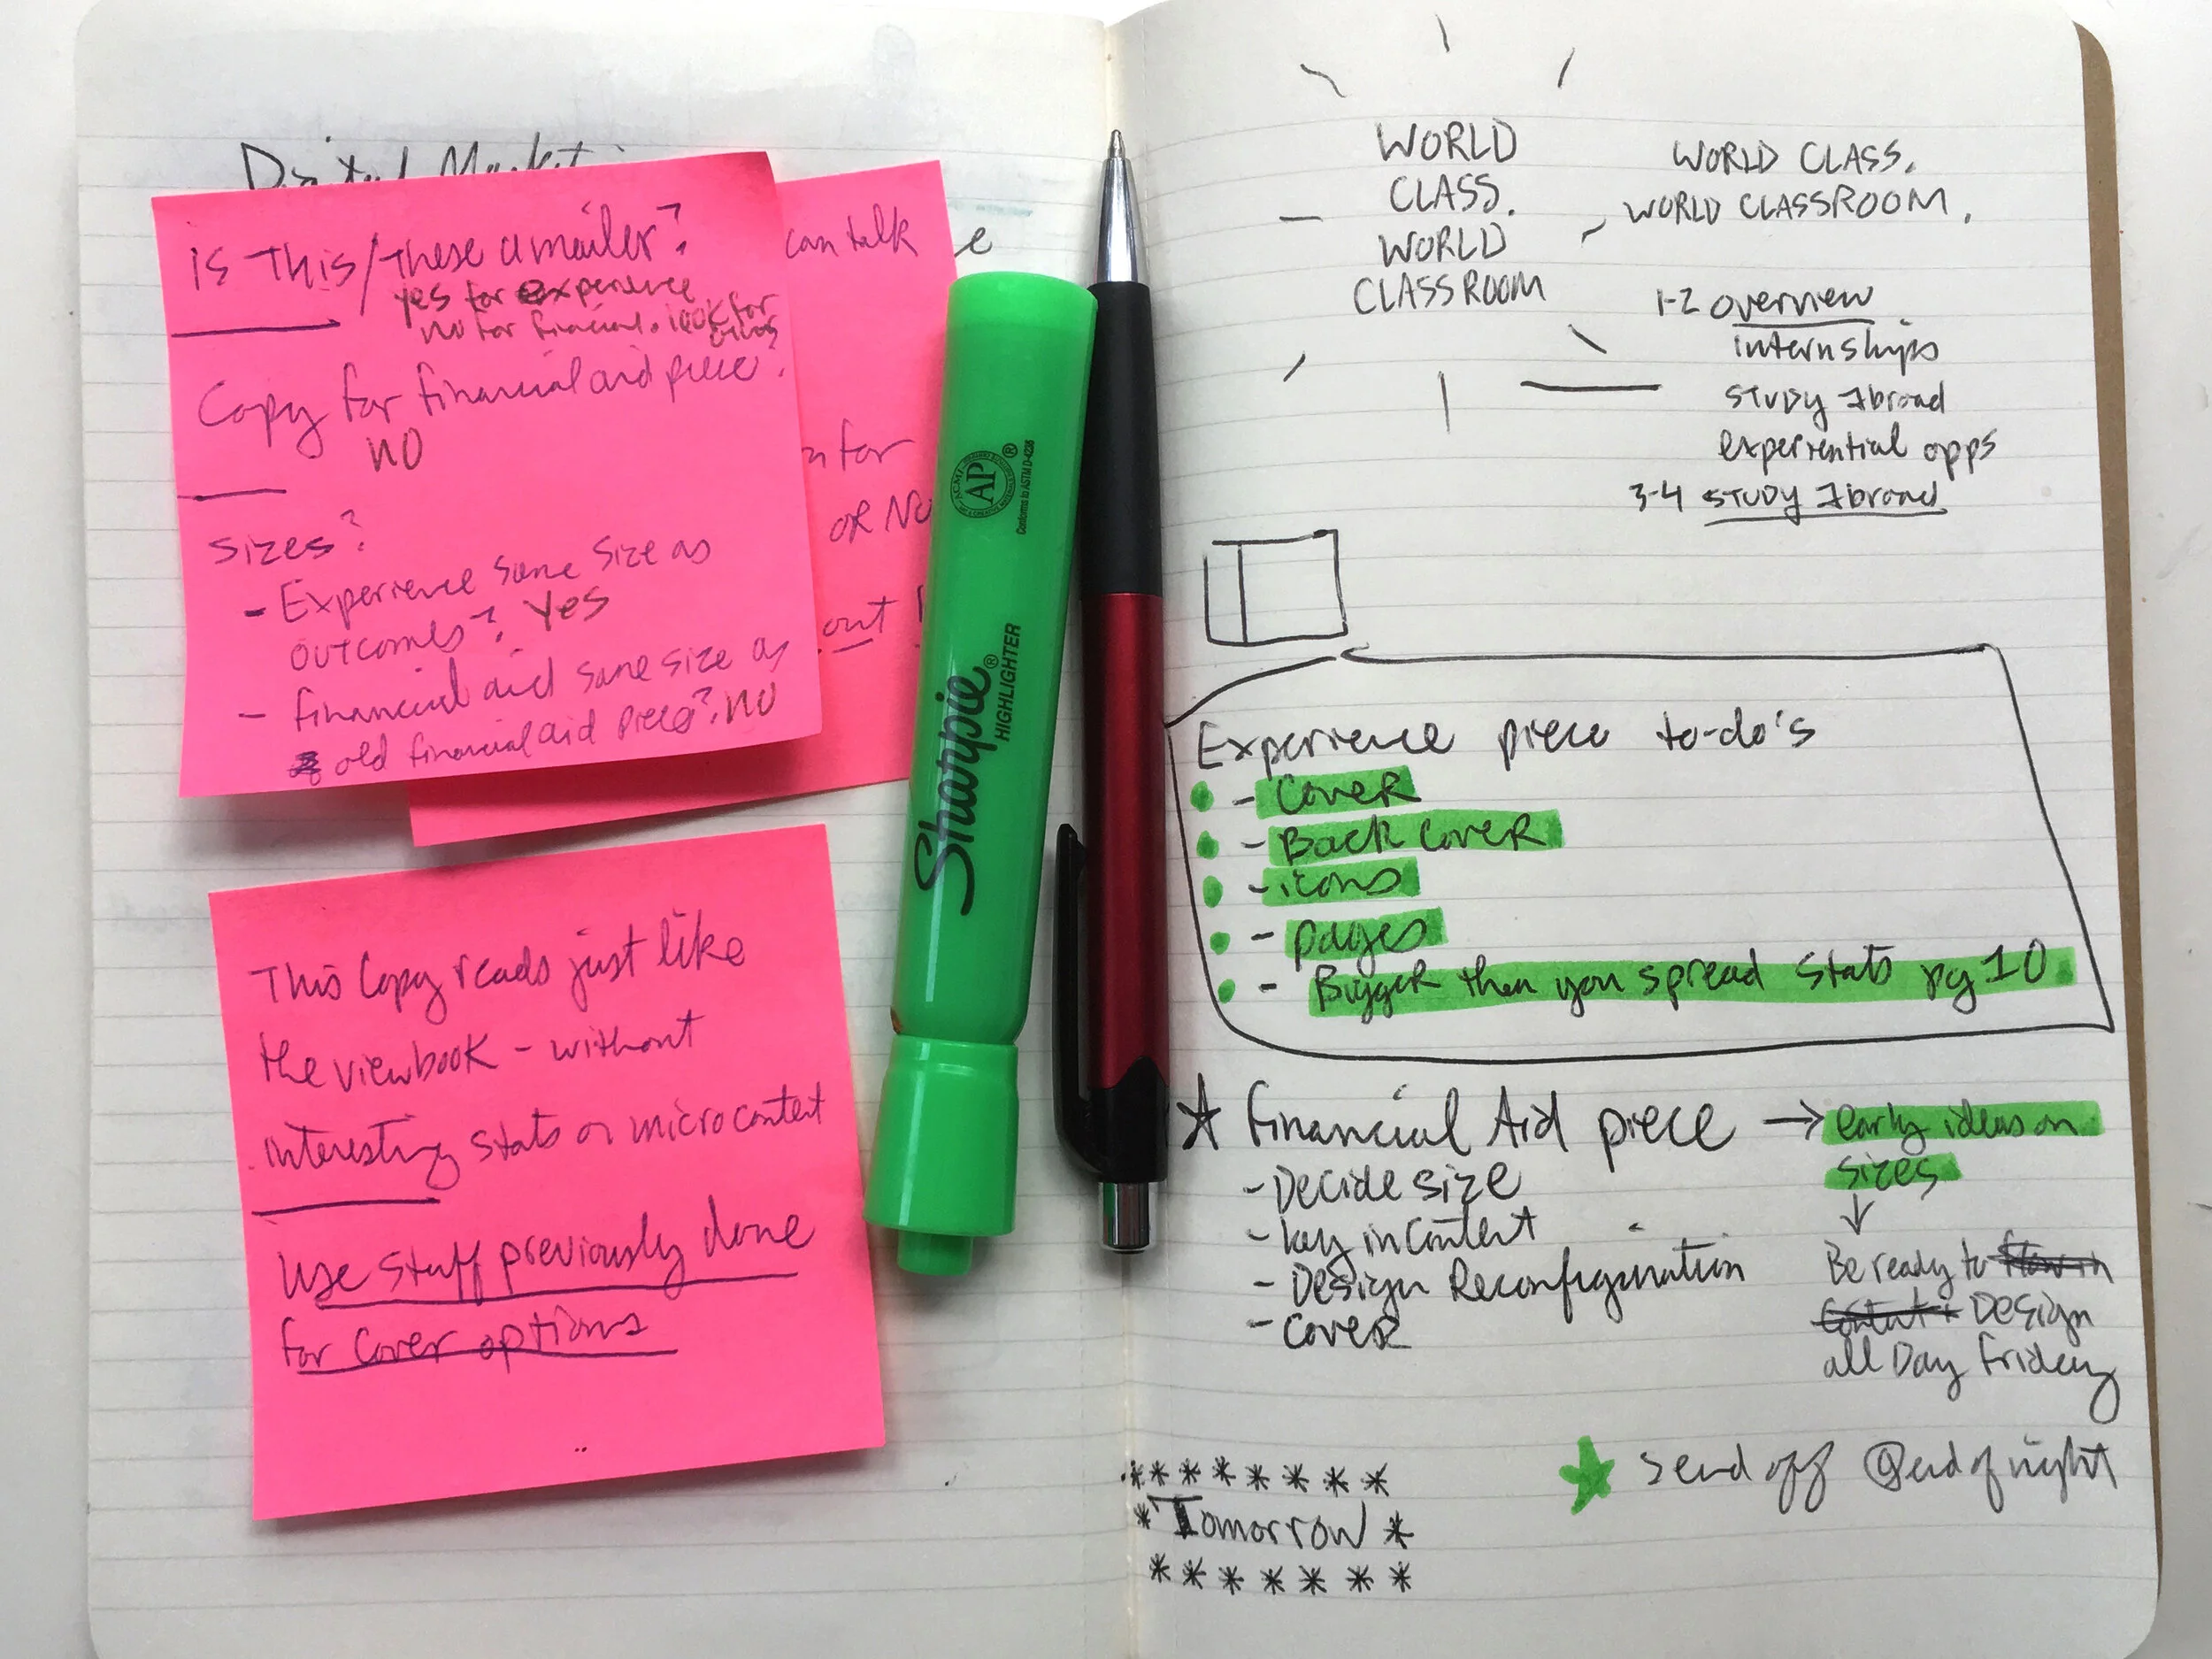 Digital Marketing
is This/These a mailer?
yes for experience
no for finacial. look for
Copy for financial aid piece?
NO
Sizes?
- Experience Same Size as
outcomes? Yes
- financial aid same size as
old financial aid piece? NO
can talk
e
for
OR NO
out
This Copy reads just like
the viewbook - without
interesting stats or microcontent
Use stuff previously done
for Cover options
Sharpie®
HIGHLIGHTER
AP
®
Conforms to ASTM D-4236
WORLD
CLASS.
WORLD
CLASSROOM
WORLD CLASS.
WORLD CLASSROOM.
1-2 overview
internships
STUDY Abroad
experiential opps
3-4 STUDY Abroad
Experience piece to-do's
- Cover
- Back Cover
- icons
- pages
- Bigger then you spread Stats pg 10
★ financial Aid piece → early ideas on
sizes
↓
- Decide size
- key in Content
- Design Reconfiguration
- Cover
Be ready to flow in
Content + Design
all Day friday
★ send off @end of night
* * * * * * * *
* Tomorrow *
* * * * * * *